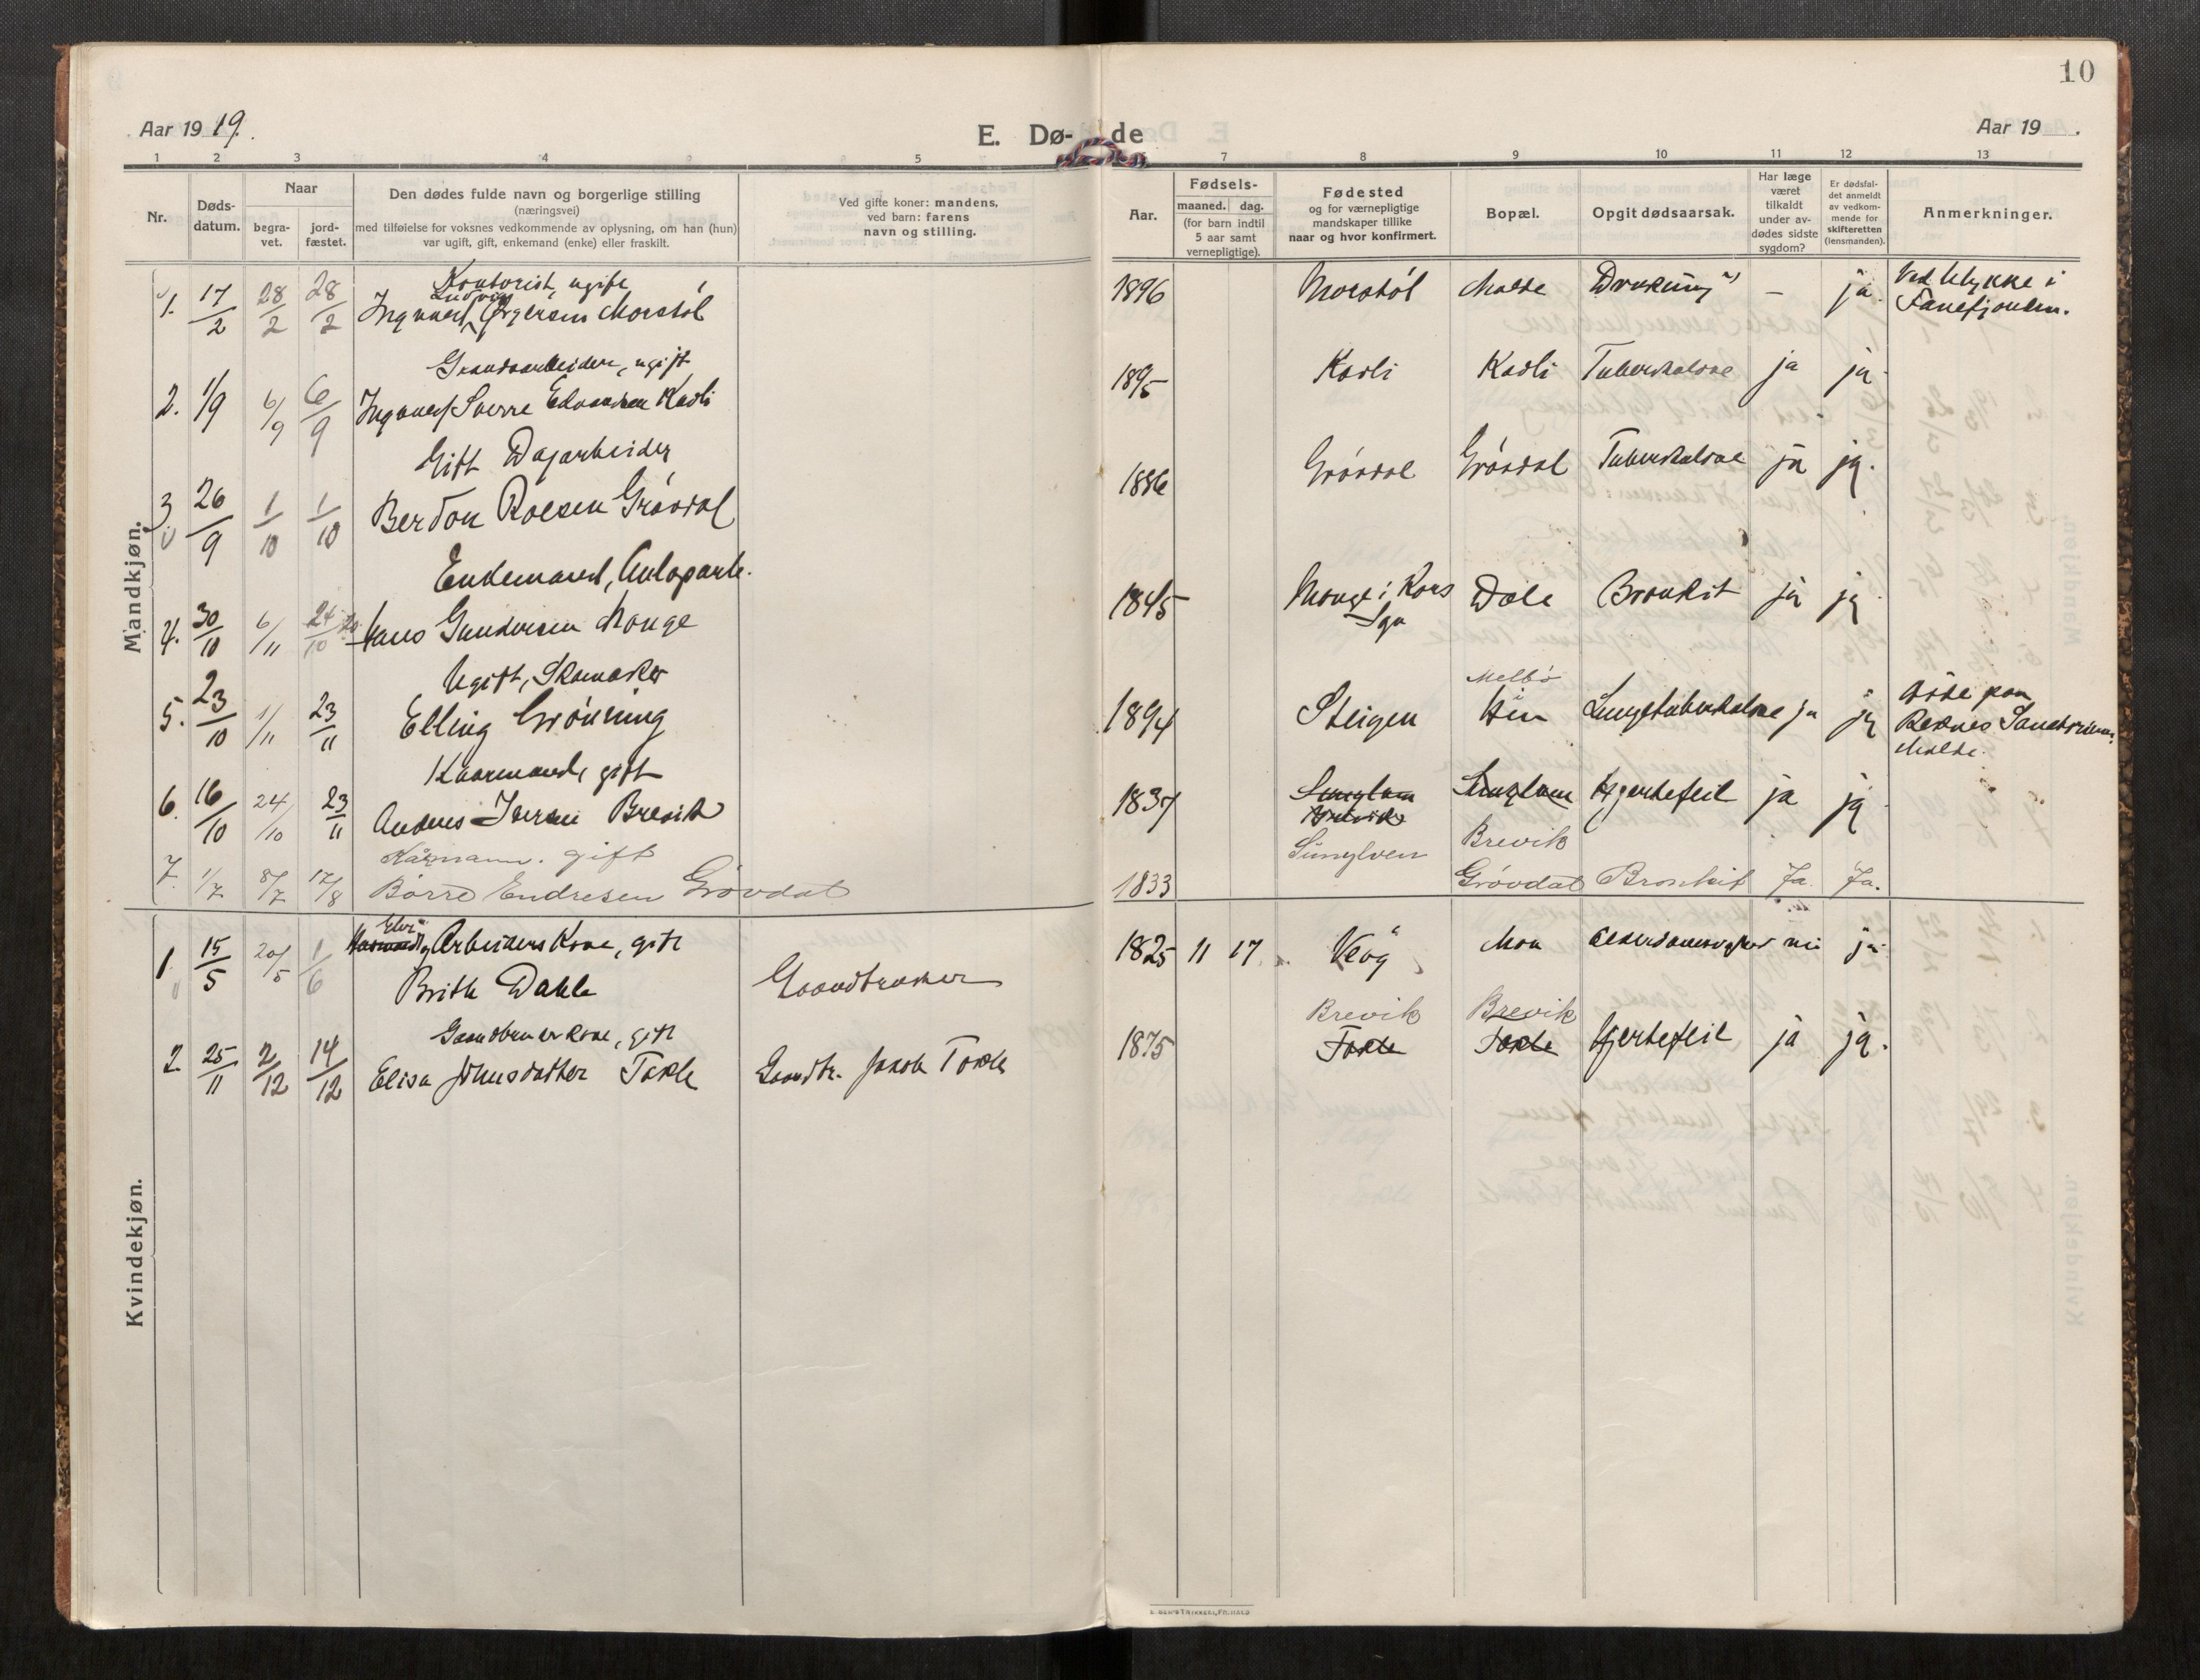 10
Aar 1919.
E. Dø- de
Aar 19 .
1 2 3 4 5 7 8 9 10 11 12 13
Nr.
Døds-
datum.
Naar
begra-
vet.
jord-
fæstet.
Den dødes fulde navn og borgerlige stilling
(næringsvei)
med tilføielse for voksnes vedkommende av oplysning, om han (hun)
var ugift, gift, enkemand (enke) eller fraskilt.
Ved gifte koner: mandens,
ved barn: farens
navn og stilling.
Aar.
Fødsels-
maaned. dag.
(for barn indtil
5 aar samt
vernepligtige).
Fødested
og for værnepligtige
mandskaper tillike
naar og hvor konfirmert.
Bopæl.
Opgit dødsaarsak.
Har læge
været
tilkaldt
under av-
dødes sidste
sygdom?
Er dødsfal-
det anmeldt
av vedkom-
mende for
skifteretten
(lensmanden).
Anmerkninger.
Mandkjøn.
Kontorist, ugift
Ludvig
1. 17/2 28/2 28/2 Ingvald Morstøl 1896 Morstøl Molde Drukning — ja. Ved Ulykke i
Fanefjorden.
Gaardsarbeider, ugift
2. 1/9 6/9 6/9 Ingvald Sverre Edvardsen Karli 1895 Karli Karli Tuberkulose ja ja
Gift Dagarbeider
3 26/9 1/10 1/10 Berdon Roesen Grøvdal 1886 Grøvdal Grøvdal Tuberkulose ja ja.
Enkemand,
4. 30/10 6/11 24/10 20 Hans Gundersen Monge 1845 Monge i Kors Dale Bronkit ja ja
Sgn
Ugift, Skomaker
5. 23/10 1/11 23/11 Elling Grønning 1894 Steigen Melbø Lungetuberkulose ja ja Døde paa
Reknes Sanatorium.
Molde.
Kaarmand, gift
6. 16/10 24/10 23/11 Anders Iversen Brevik 1837 Sunylven Sunylven Hjertefeil ja ja
Brevik
Sunylven Brevik
Kårmann. gift
7. 1/7 8/7 17/8 Børre Endresen Grøvdal 1833 Grøvdal Bronkit Ja. Ja.
Kvindekjøn.
1. 15/5 20/5 1/6 Arbeiders Kone, gift 1825 11 17 Veøy Moa Alderdomssvakhet nei ja
Brith Dahle Gaardbruker
Gaardbrukerkone, gift Brevik Brevik
2. 25/11 2/12 14/12 Elisa Johnsdatter Tokle Gaardbr. Jakob Tokle 1875 Tokle Tokle Hjertefeil ja ja.